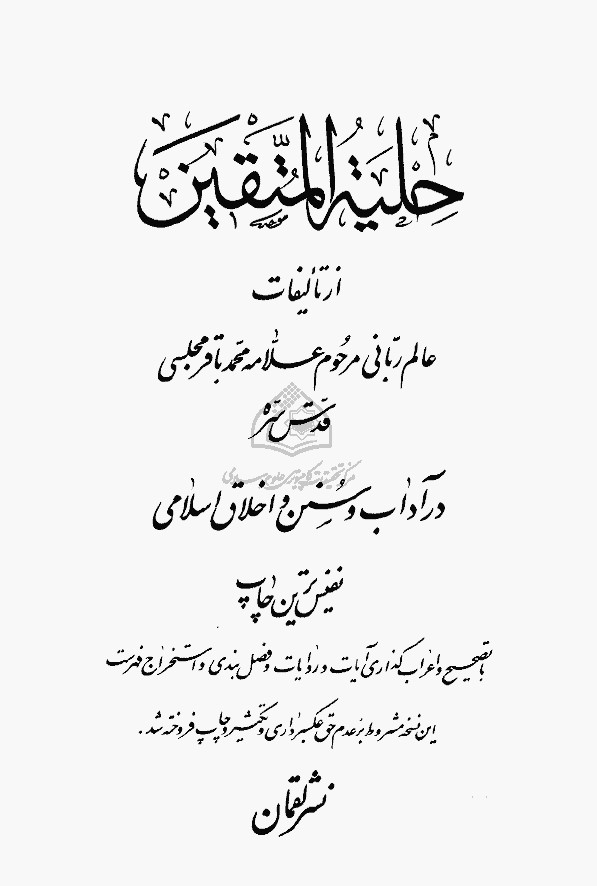 حِلْیَةُ الْمُتَّقینَ
از تألیفات
عالم ربّانی مرحُوم علّامه محمّد باقر مجلسی
قدّس سرّه
مرکز تحقیقات کامپیوتری علوم اسلامی
در آداب و سُنن و اخلاق اسلامی
نفیس ترین چاپ
با تصحیح و اعراب گذاری آیات و روایات و فصل بندی و استخراج فهرست
این نسخه مشروط بر عدم حق عکسبرداری و تکثیر و چاپ فروخته شد .
نشر لقمان